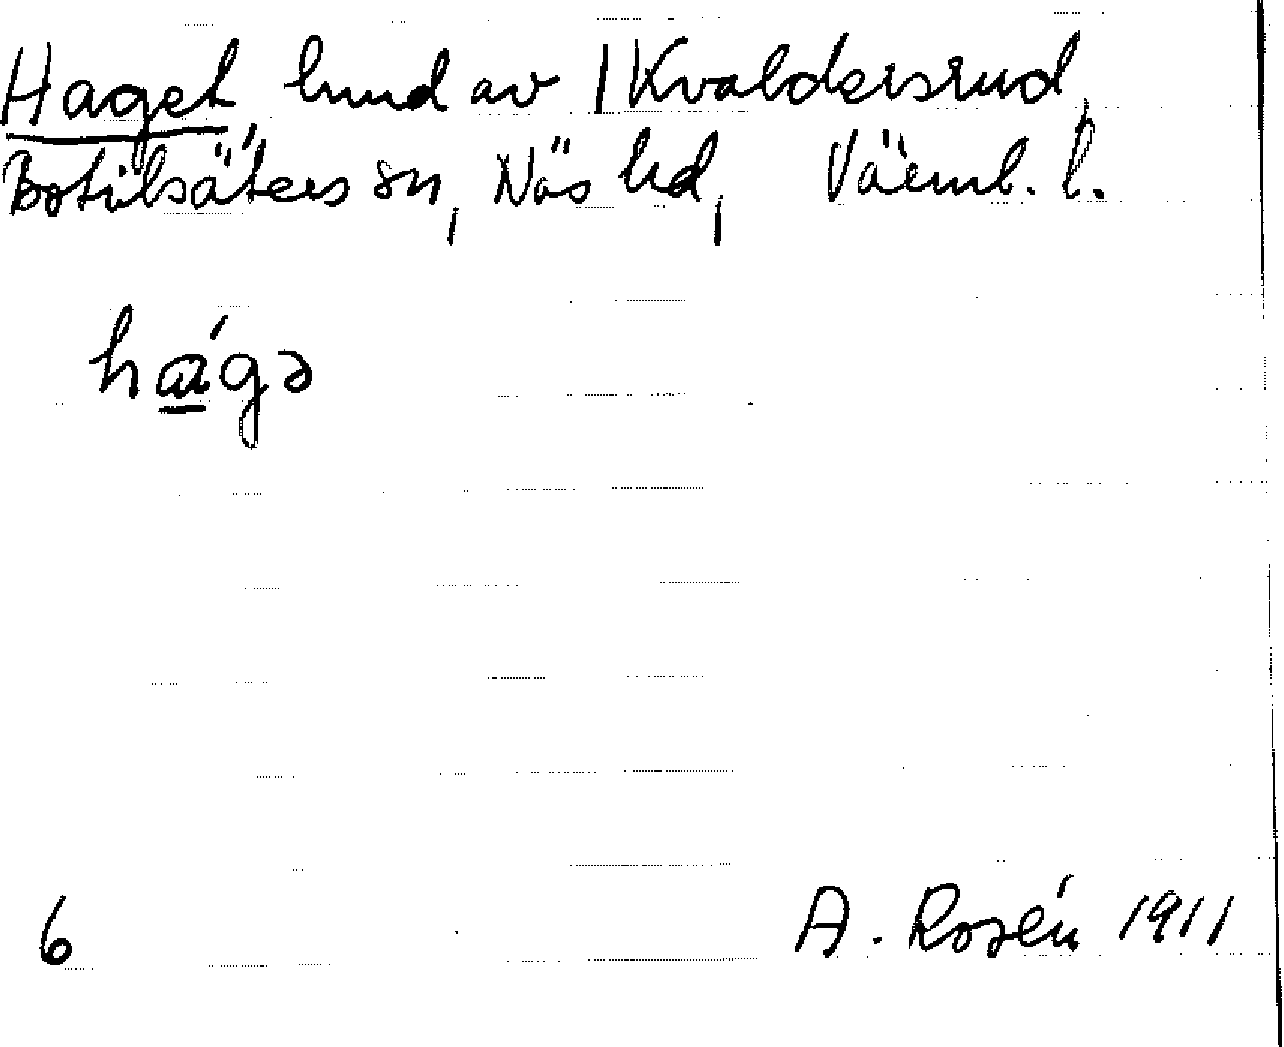 Haget, lund av 1 Kvaldersrud,
Botilsäters sn, Näs hd, Värml. l.
hágə
6
A. Rosén 1911